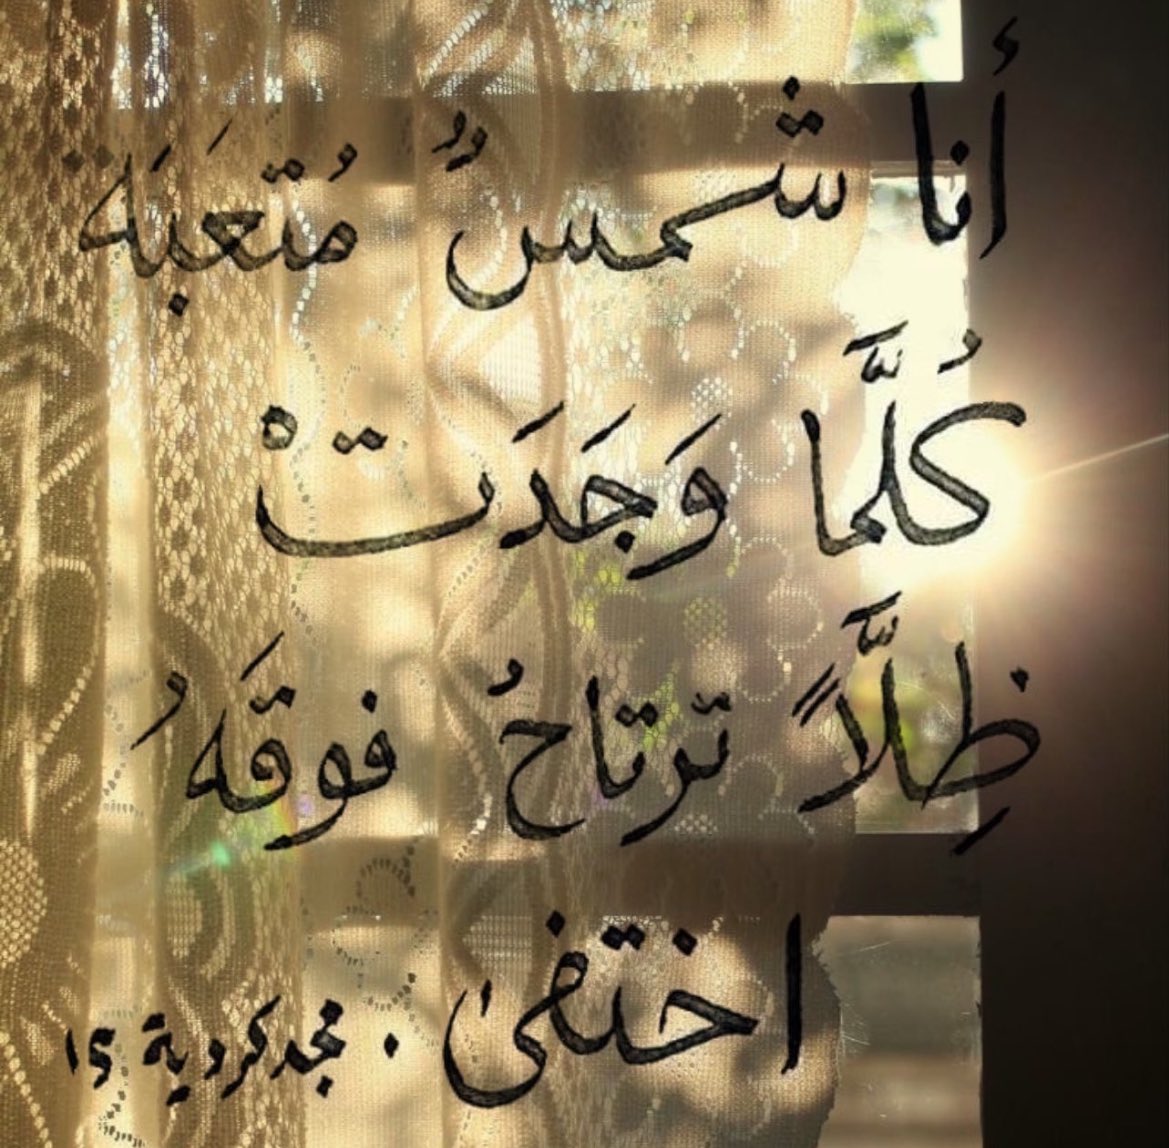 أنا شمسٌ مُتعَبَة
كُلَّما وَجَدَتْ
ظِلَّاً ترتاحُ فوقَهُ
اختفى . مجد كردية ١٥